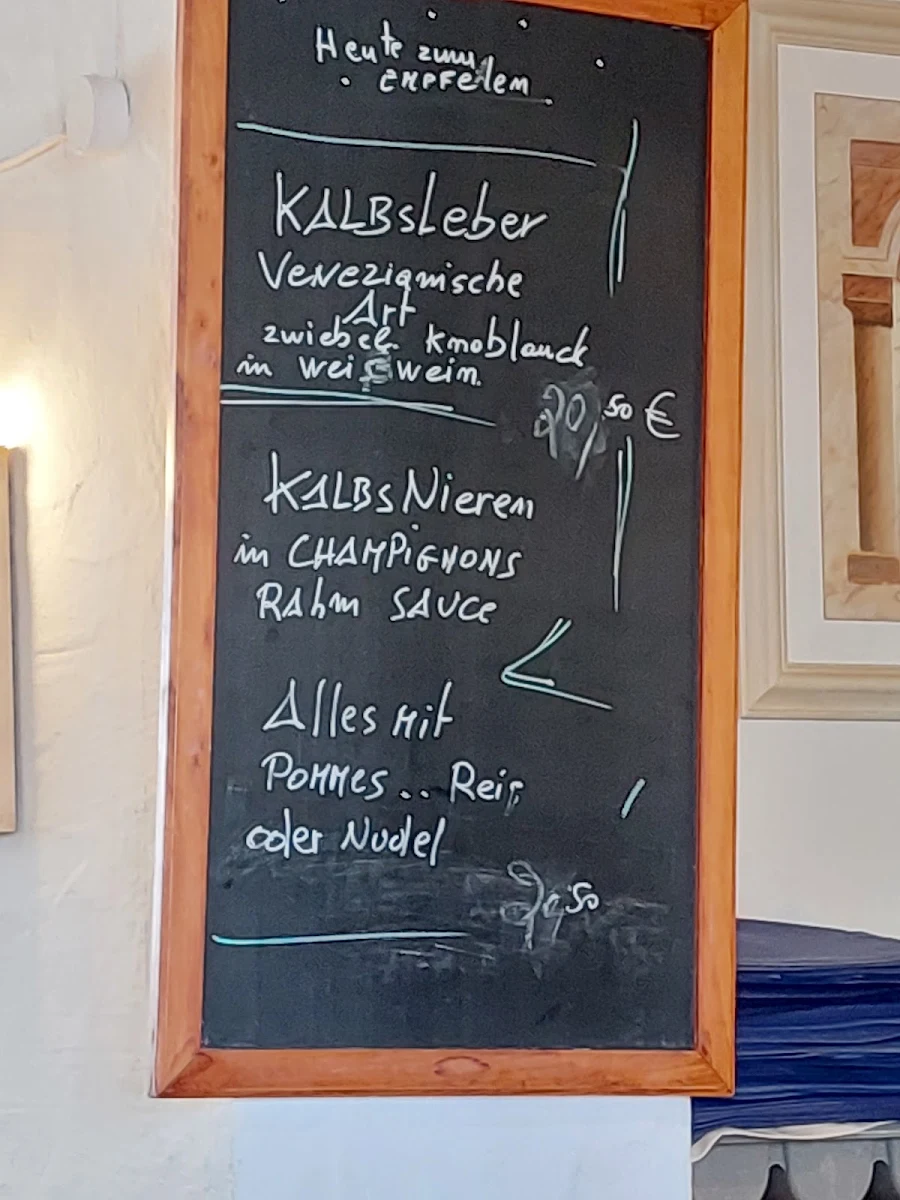 Heute zum
EMPFelem
KALBsLeber
Venezianische
Art
zwiebel knoblauch
in weißwein.
20,50 €
KALBsNieren
in CHAMPiGNONS
RAhm SAUCe
Alles mit
POMMES.. Reis
oder Nudel